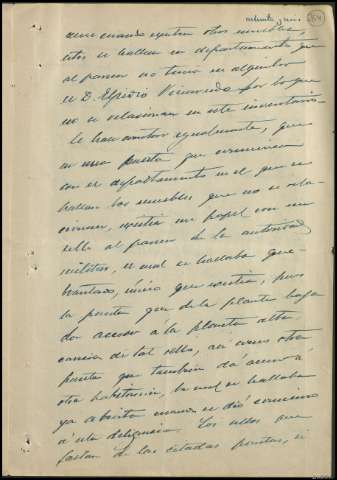 ochenta y cinco 84
aun cuando existen otros muebles,
estos se hallan en departamentos que
al parecer no tiene en alquiler
el D. Elpidio por lo que
no se relacionan en este inventario.
Se hace constar igualmente, que
en una puerta que comunica
con el departamento en el que se
hallan los muebles que no se rela-
cionan, existía un papel con un
sello al parecer de la autoridad
militar, el cual se hallaba que-
brantado, único que existía, pues
la puerta que de la planta baja
da acceso á la planta alta
carecía de tal sello, así como otra
puerta que también dá acceso á
otra habitación, la cual se hallaba
ya abierta cuando se dió comienzo
á esta diligencia. Los sellos que
faltan de las citadas puertas, ni